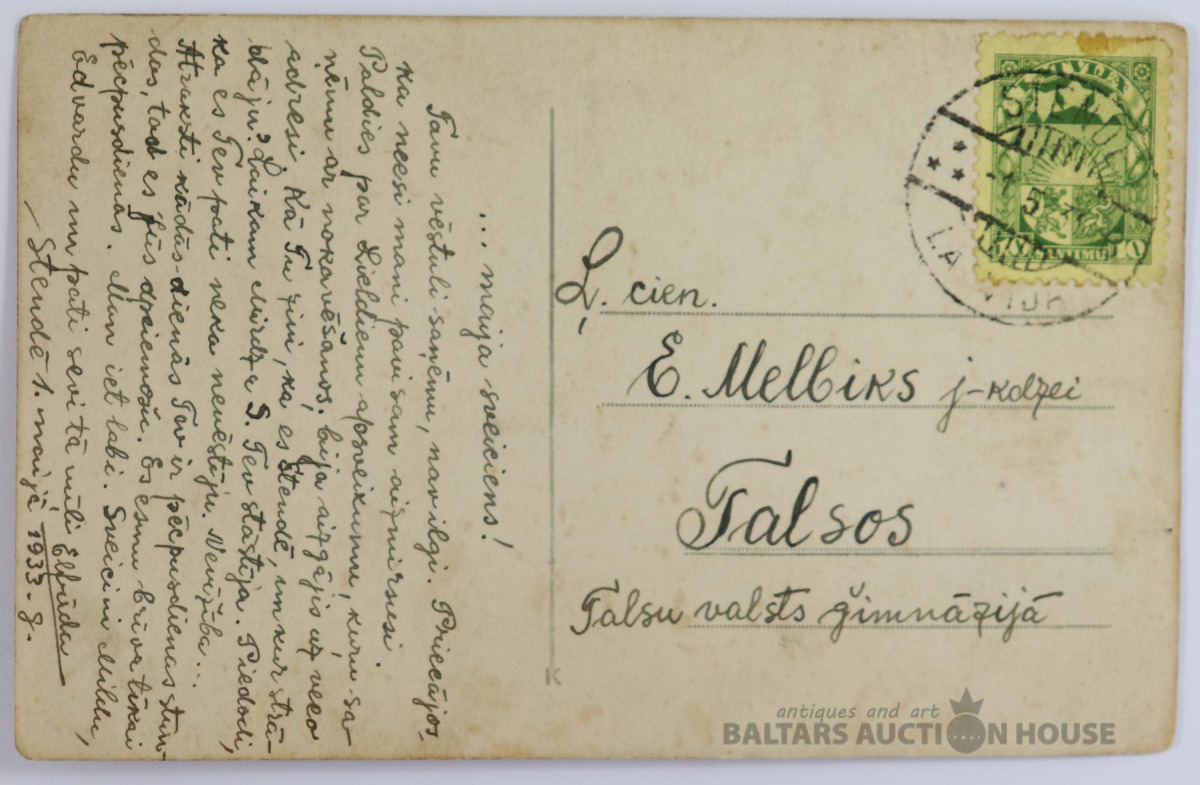 ... maija sveiciens!
Tavu vēstuli saņēmu, nav ilgi. Priecājos,
ka neesi mani pavisam aizmirsusi.
Paldies par Lieldienu apsveikumu, kuru sa-
ņēmu ar nokavēšanos, bija aizgājis uz veco
adresi. Kā Tu zini, ka es Stendē, un kur strā-
dāju? Laikam Mirdza S. Tev stāstīja. Piedod,
ka es Tev pati neka nevēstīju. Nevīžība...
Atraksti kādās dienās Tev ir pēcpusdienas stun-
das, tad es Jūs apciemošu. Es esmu brīva tikai
pēcpusdienās. Man iet labi. Sveicini Mildu,
Edvardu un pati sevi tā mīļi
Stendē 1. maijā, 1933. g.
Ļ. cien.
E. Melbiks j-kdzei
Talsos
Talsu valsts ģimnāzijā
LATVIJA
10
SANTIMU
STENDE
LATVIJA
K
antiques and art
BALTARS AUCTION HOUSE